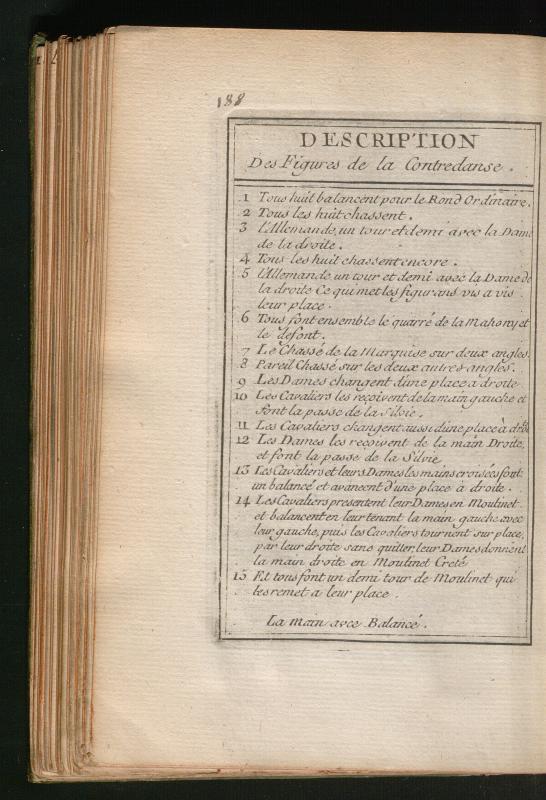 188
DESCRIPTION
Des Figures de la Contredanse.
1 Tous huit balancent pour le Rond Ordinaire.
2 Tous les huit chassent.
3 l'Allemande, un tour et demi avec la Dame
de la droite.
4 Tous les huit chassent encore.
5 l'Allemande un tour et demi avec la Dame de
la droite Ce qui met les figurans vis a vis
leur place.
6 Tous font ensemble le quarré de la Mahony et
le defont.
7 Le Chassé de la Marquise sur deux angles.
8 Pareil Chassé sur les deux autres angles.
9 Les Dames changent d'une place à droite
10 Les Cavaliers les reçoivent de la main gauche et
font la passe de la Silvie.
11 Les Cavaliers changent aussi d'une place à dr.te
12 Les Dames les reçoivent de la main Droite,
et font la passe de la Silvie
13 Les Cavaliers et leurs Dames les mains croisées font
un balancé et avancent d'une place à droite.
14 Les Cavaliers presentent leur Dames en Moulinet
et balancent en leur tenant la main gauche avec
leur gauche, puis les Cavaliers tournent sur place,
par leur droite sans quitter, leur Dames donnent
la main droite en Moulinet Creté
15 Et tous font un demi tour de Moulinet qui
les remet a leur place.
La main avec Balancé.